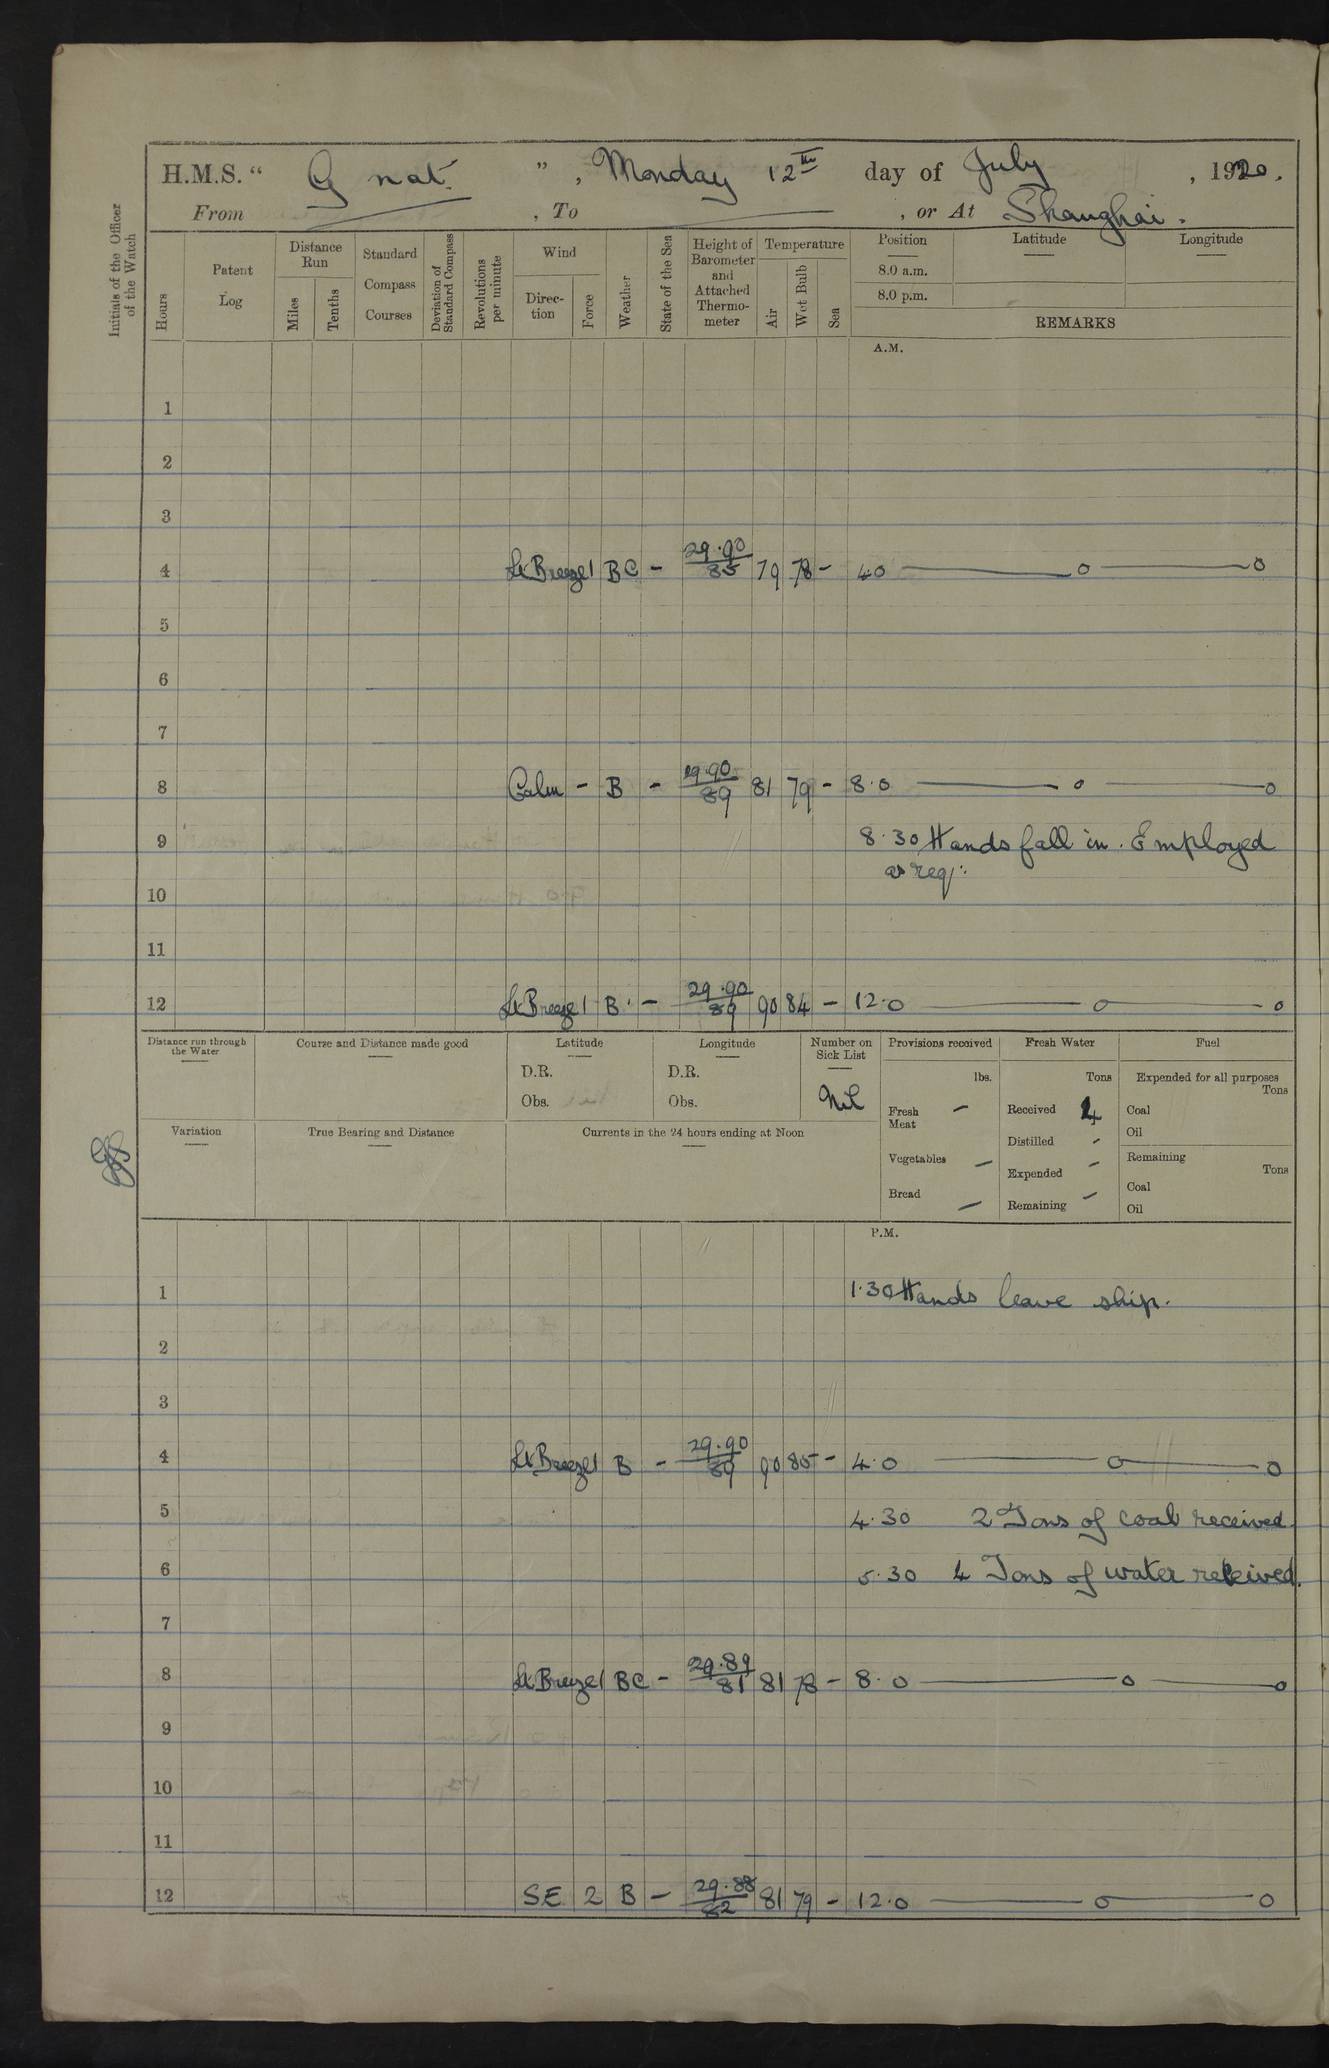 H.M.S. “ Gnat. ” , Monday 12th day of July , 1920.
From , To , or At Shanghai.
Initials of the Officer of the Watch
Hours
Patent Log
Distance Run
Miles
Tenths
Standard Compass Courses
Deviation of Standard Compass
Revolutions per minute
Wind
Direc-tion
Force
Weather
State of the Sea
Height of Barometer and Attached Thermo-meter
Temperature
Air
Wet Bulb
Sea
Position Latitude Longitude
8.0 a.m.
8.0 p.m.
REMARKS
A.M.
1
2
3
4 Lt Breeze 1 BC - 29.90/85 79 78 - 4 0 — o — o
5
6
7
8 Calm - B - 29.90/89 81 79 - 8.0 — o — o
9 8.30 Hands fall in. Employed
as req:
10
11
12 Lt Breeze 1 B - 29.90/89 90 84 - 12.0 — o — o
Distance run through the Water
Course and Distance made good
Latitude
D.R.
Obs.
Longitude
D.R.
Obs.
Number on Sick List
Nil
Provisions received
lbs.
Fresh Meat -
Vegetables -
Bread -
Fresh Water
Tons
Received 4
Distilled -
Expended -
Remaining -
Fuel
Expended for all purposes
Tons
Coal
Oil
Remaining
Tons
Coal
Oil
Variation
True Bearing and Distance
Currents in the 24 hours ending at Noon
P.M.
1 1.30 Hands leave ship.
2
3
4 Lt Breeze 1 B - 29.90/89 90 85 - 4.0 — o — o
5 4.30 2 Tons of coal received.
6 5.30 4 Tons of water received.
7
8 Lt Breeze 1 BC - 29.89/81 81 78 - 8.0 — o — o
9
10
11
12 SE 2 B - 29.88/82 81 79 - 12.0 — o — o